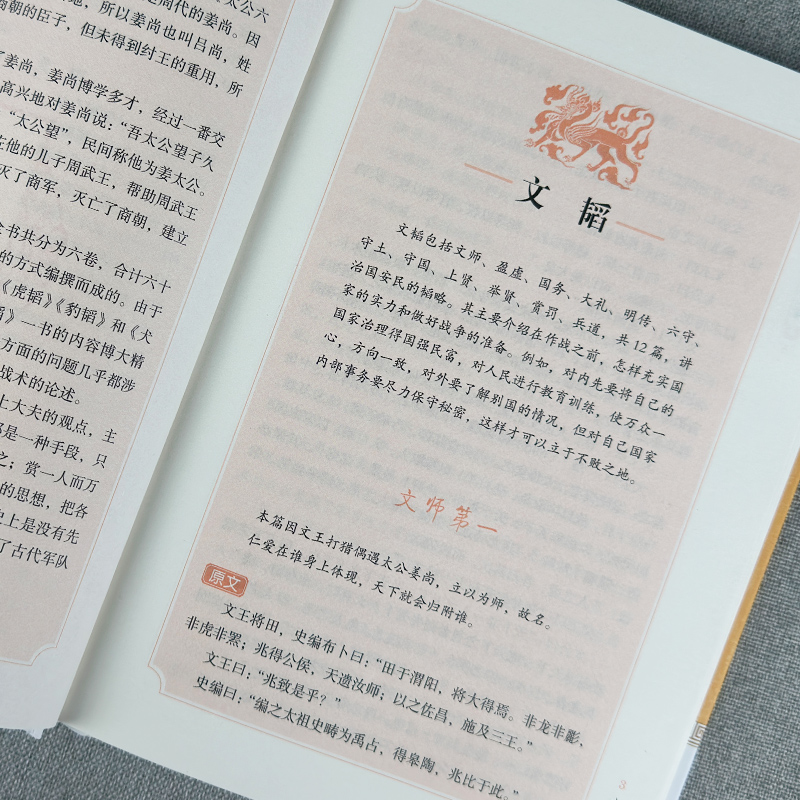 是周代的姜尚。因
地，所以姜尚也叫吕尚，姓
商朝的臣子，但未得到纣王的重用，所
了姜尚，姜尚博学多才，经过一番交
高兴地对姜尚说：“吾太公望子久
“太公望”，民间称他为姜太公。
他的儿子周武王，帮助周武王
灭了商军，灭亡了商朝，建立
全书共分为六卷，合计六十
的方式编撰而成的。由于
《虎韬》《豹韬》和《犬
》一书的内容博大精
方面的问题几乎都涉
战术的论述。
上大夫的观点，主
都是一种手段，只
之；赏一人而万
的思想，把各
史上是没有先
了古代军队
文韬
文韬包括文师、盈虚、国务、大礼、明传、六守、
守土、守国、上贤、举贤、赏罚、兵道，共12篇，讲
治国安民的韬略。其主要介绍在作战之前，怎样充实国
家的实力和做好战争的准备。例如，对内先要将自己的
国家治理得国强民富，对人民进行教育训练，使万众一
心，方向一致，对外要了解别国的情况，但对自己国家
内部事务要尽力保守秘密，这样才可以立于不败之地。
文师第一
本篇因文王打猎偶遇太公姜尚，立以为师，故名。
仁爱在谁身上体现，天下就会归附谁。
原文
文王将田，史编布卜曰：“田于渭阳，将大得焉。非龙非彨，
非虎非罴；兆得公侯，天遗汝师；以之佐昌，施及三王。”
文王曰：“兆致是乎？”
史编曰：“编之太祖史畴为禹占，得皋陶，兆比于此。”
3